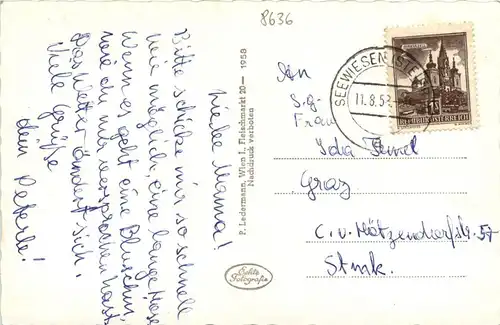 8636
Liebe Mama!
Bitte schicke mir so schnell
wie möglich, eine lange Hose
Wenn es geht eine Bluschin,
wie du mir versprochen hast.
Das Wetter ändert sich.
Viele Grüße
dein Peterle!
P. Ledermann, Wien I., Fleischmarkt 20 — 1958
Nachdruck verboten
Echte
Fotografie
SEEWIESEN
11.8.5
REPUBLIK ÖSTERREICH
An
S.g.
Frau
Ida
Graz
C. v. Hötzendorfstr. 57